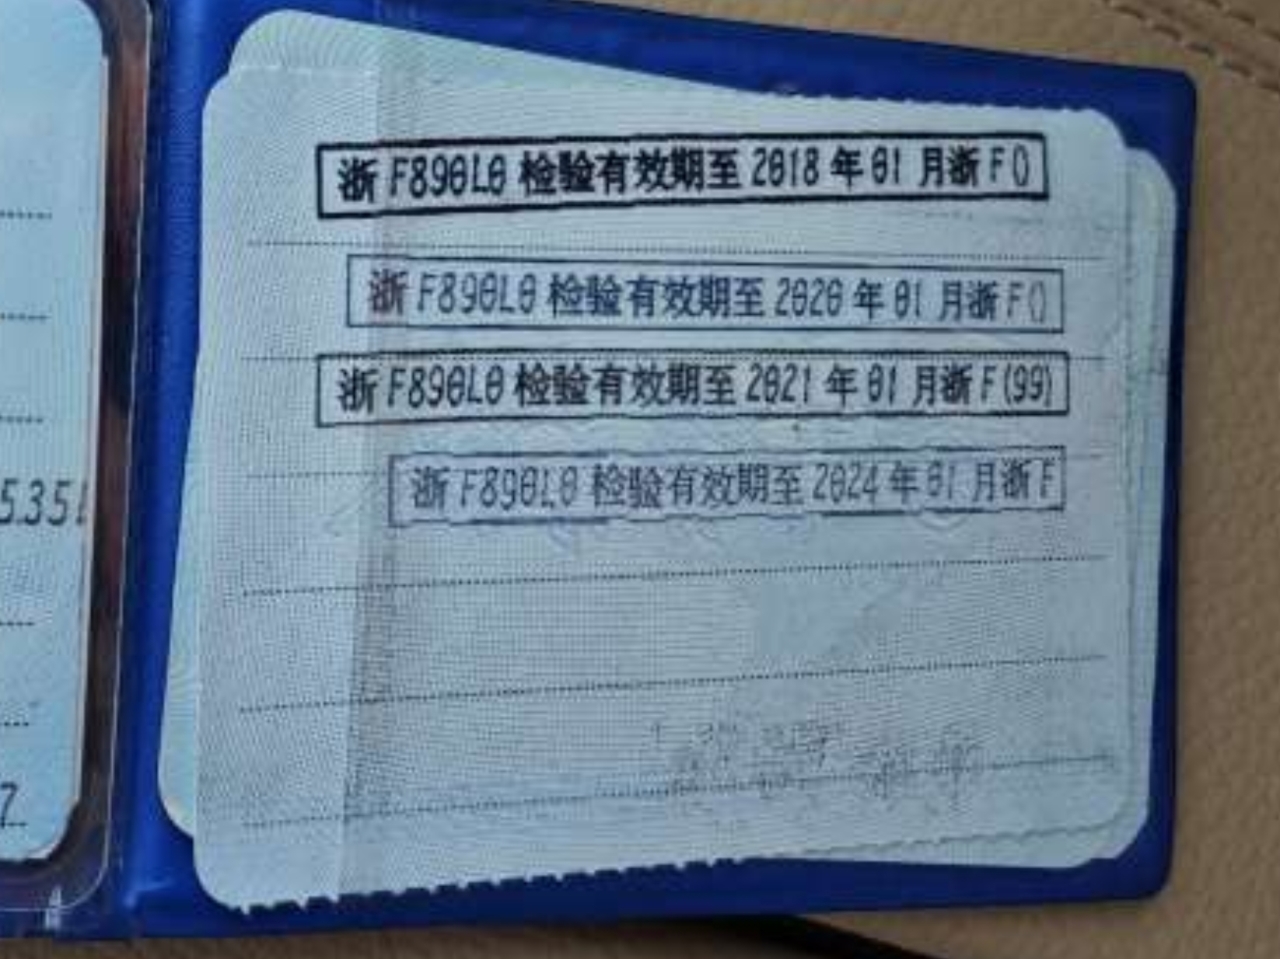 浙 F890L0 检验有效期至 2018 年 01 月浙 F ()
浙 F890L0 检验有效期至 2020 年 01 月浙 F ()
浙 F890L0 检验有效期至 2021 年 01 月浙 F (99)
浙 F890L0 检验有效期至 2024 年 01 月浙 F
5.35
7